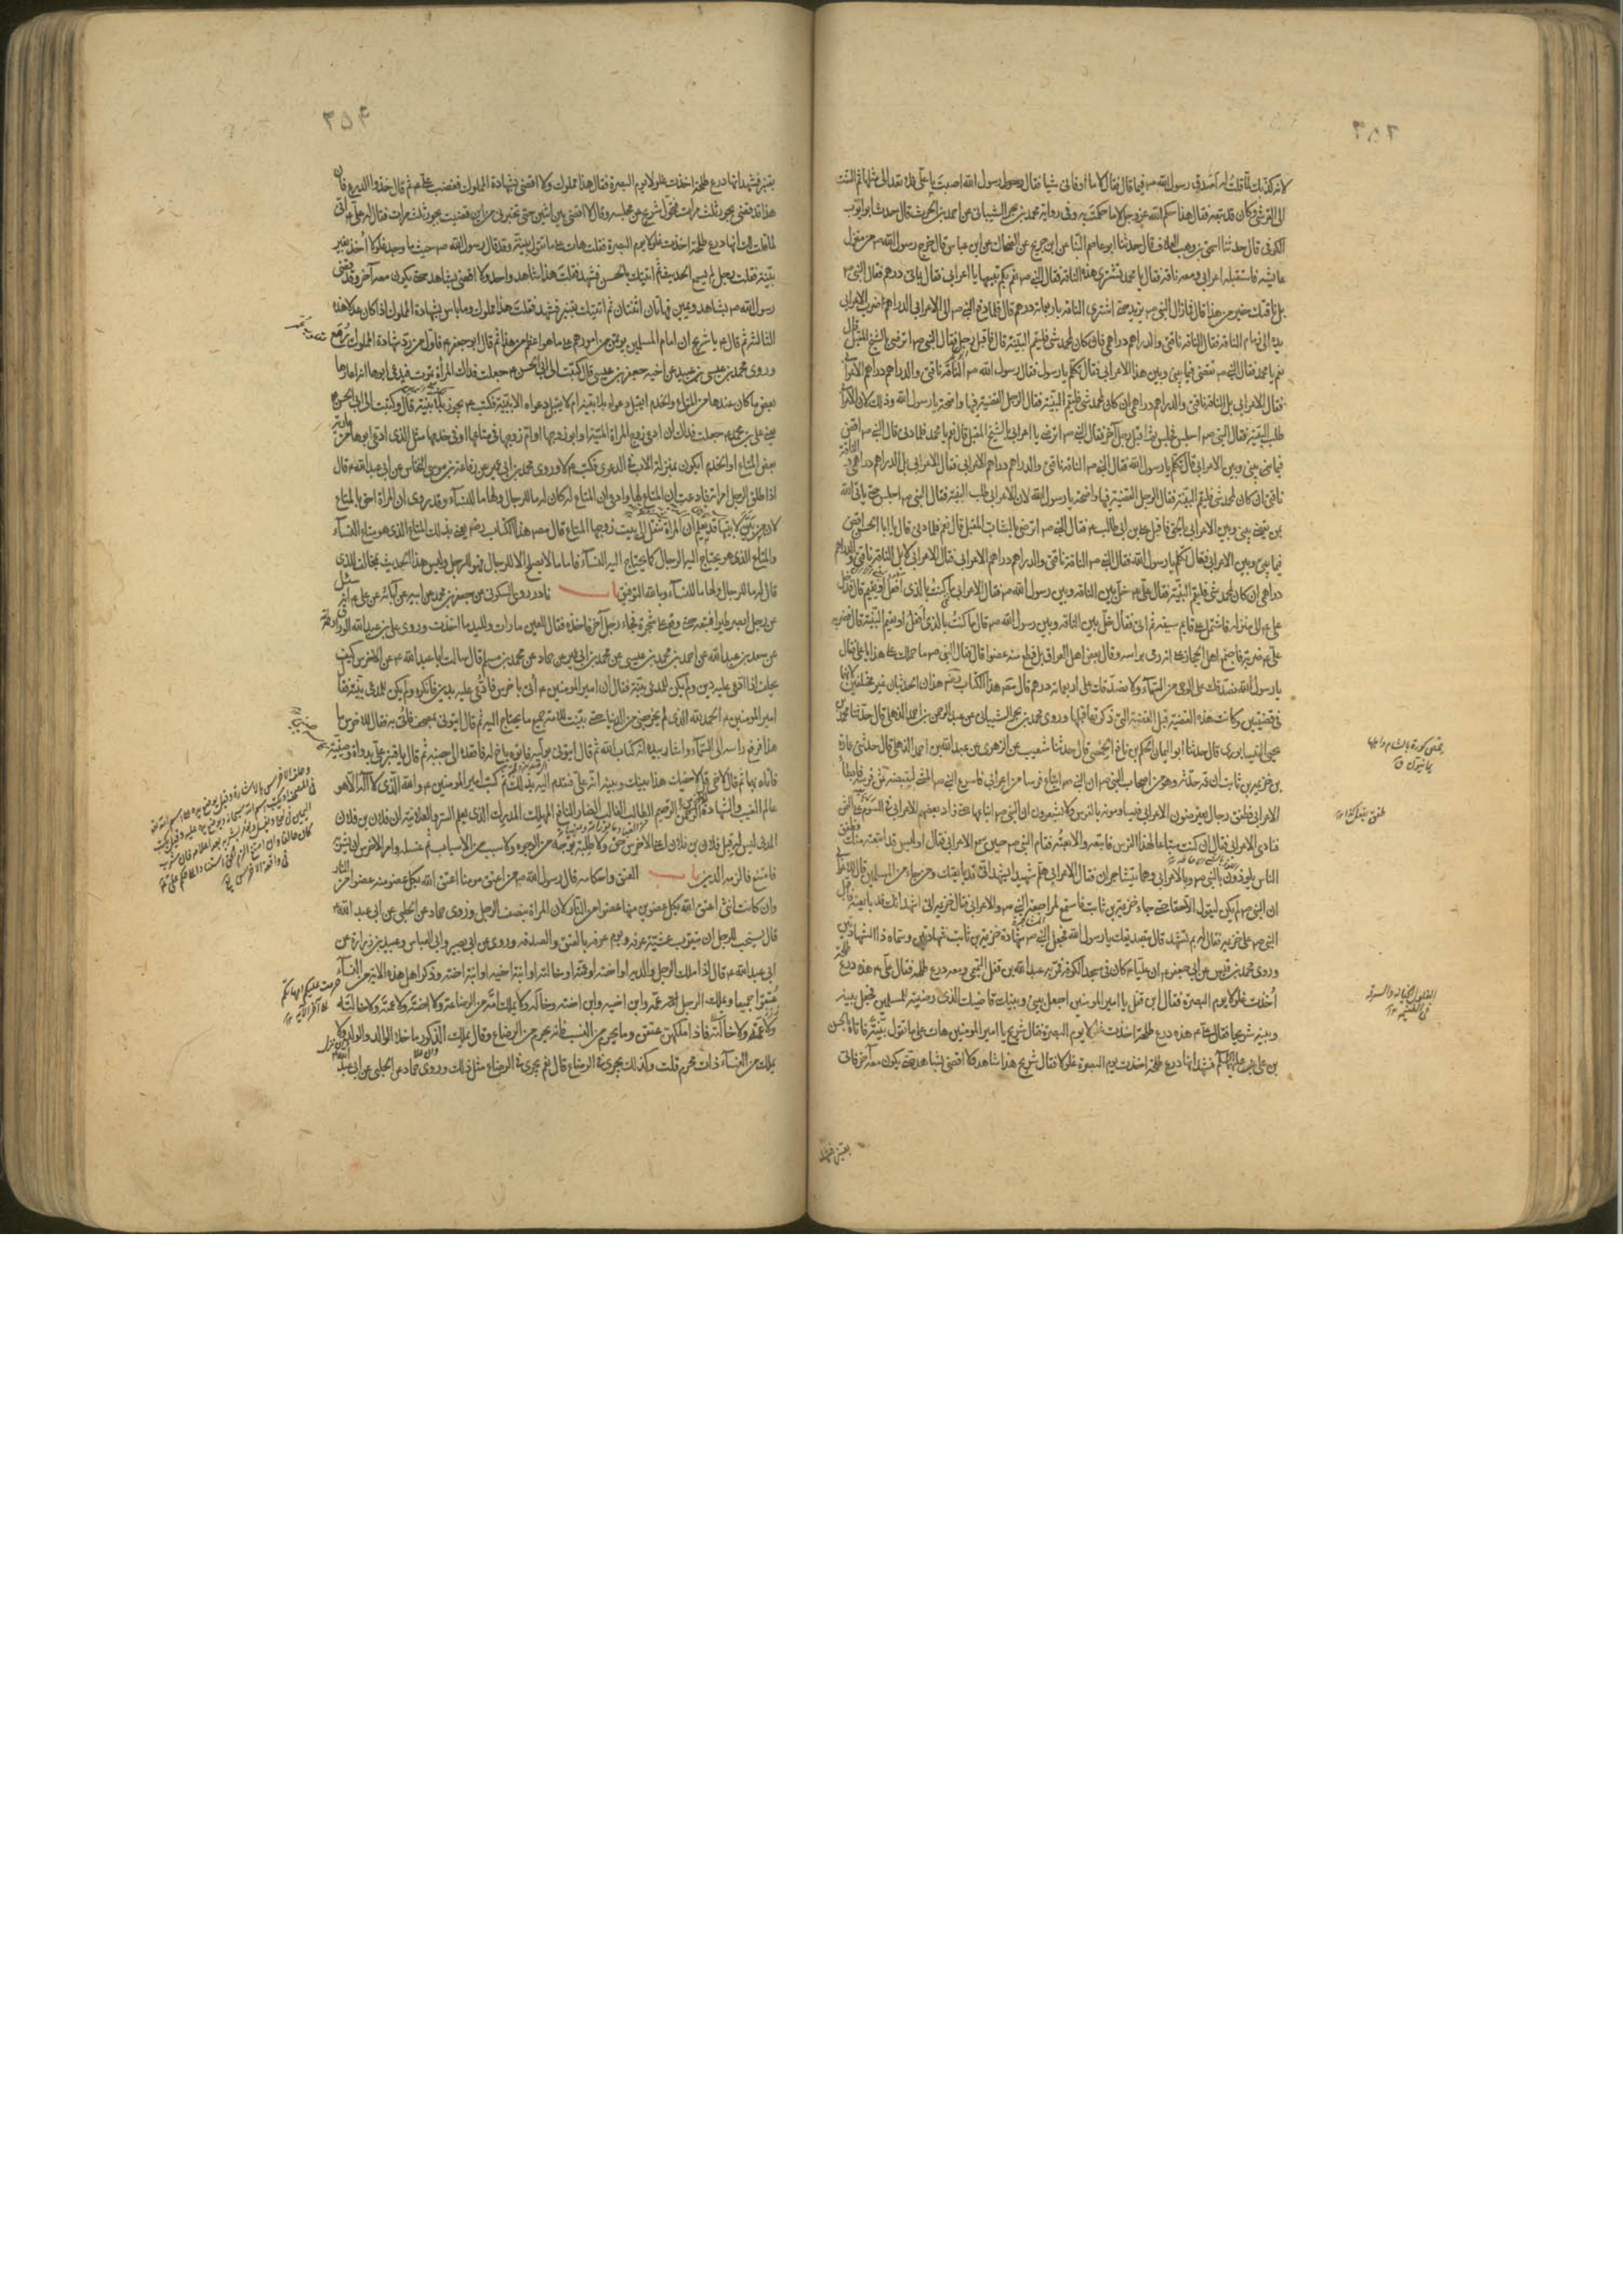 ٣٥٣
لانه كذبك لما قلت له اصدق رسول الله ص فيما قال فقال لا ما اوفانى شيا فقال رسول الله اصبت يا على فلا تعد الى مثلها ثم التفت
الى القرشى وكان قد تبعه فقال هذا حكم الله عز وجل لا ما حكمت به وفى رواية محمد بن بحر الشيبانى عن احمد بن الحرث قال حدثنا ابو ايوب
الكوفى قال حدثنا اسحق بن وهب العلاف قال حدثنا ابو عاصم النبال عن ابن جريج عن الضحاك عن ابن عباس قال خرج رسول الله ص من منزل
عايشه فاستقبله اعرابى ومعه ناقة فقال يا محمد تشترى هذه الناقة فقال النبى ص نعم بكم تبيعها يا اعرابى فقال بمائتى درهم فقال النبى ص
بل ناقتك خير من هذا قال فما زال النبى ص يزيد حتى اشترى الناقة باربعمائة درهم قال فلما دفع النبى ص الى الاعرابى الدراهم ضرب الاعرابى
يده الى زمام الناقة فقال الناقة ناقتى والدراهم دراهمى فان كان لمحمد شئ فليقم البينة قال فاقبل رجل فقال النبى ص اترضى بالشيخ المقبل قال
نعم يا محمد فقال النبى ص تقضى فيما بينى وبين هذا الاعرابى فقال تكلم يا رسول الله فقال رسول الله ص الناقة ناقتى والدراهم دراهم الاعرابى
فقال الاعرابى بل الناقة ناقتى والدراهم دراهمى ان كان لمحمد شئ فليقم البينة فقال الرجل القضية فيها واضحة يا رسول الله وذلك لان الاعرابى
طلب البينة فقال النبى ص اجلس فجلس ثم اقبل رجل آخر فقال النبى ص اترضى يا اعرابى بالشيخ المقبل قال نعم يا محمد فلما دنى قال النبى ص اقض
فيما بينى وبين الاعرابى قال تكلم يا رسول الله فقال النبى ص الناقة ناقتى والدراهم دراهم الاعرابى فقال الاعرابى بل الدراهم دراهمى والناقة
ناقتى فان كان لمحمد شئ فليقم البينة فقال الرجل القضية فيها واضحة يا رسول الله لان الاعرابى طلب البينة فقال النبى ص اجلس حتى ياتى الله
بمن يقضى بينى وبين الاعرابى بالحق فاقبل على بن ابى طالب ع فقال النبى ص اترضى بالشاب المقبل قال نعم فلما دنى قال يا ابا الحسن اقض
فيما بينى وبين الاعرابى فقال تكلم يا رسول الله فقال النبى ص الناقة ناقتى والدراهم دراهم الاعرابى فقال الاعرابى لا بل الناقة ناقتى والدراهم
دراهمى ان كان لمحمد شئ فليقم البينة فقال على ع خل بين الناقة وبين رسول الله ص فقال الاعرابى ما كنت بالذى افعل او يقيم البينة قال فدخل
على ع الى منزله فاشتمل على قايم سيفه ثم اتى فقال خل بين الناقة وبين رسول الله ص قال ما كنت بالذى افعل او يقيم البينة قال فضربه
على ع ضربة فاجتمع اهل الحجاز على انه رمى براسه وقال بعض اهل العراق بل قطع منه عضوا قال فقال النبى ص ما حملك على هذا يا على فقال
يا رسول الله نصدقك على الوحى من السماء ولا نصدقك على اربعمائة درهم قال مصنف هذا الكتاب رضه هذان الحديثان غير مختلفين لانهما
فى قضيتين وكانت هذه القضية قبل القضية التى ذكرتها قبلها وروى محمد بن بحر الشيبانى عن عبد الرحمن بن احمد الذهلى قال حدثنا محمد بن
يحيى النيسابورى قال حدثنا ابو اليمان الحكم بن نافع الحمصى قال حدثنا شعيب عن الزهرى عن عبد الله بن احمد الذهلى قال حدثنى عمارة
بن خزيمة بن ثابت ان عمه حدثه وهو من اصحاب النبى ص ان النبى ص ابتاع فرسا من اعرابى فاسرع النبى ص المشى ليقبضه ثمن فرسه فابطأ
الاعرابى فطفق رجال يعترضون الاعرابى فيساومونه بالفرس ولا يشعرون ان النبى ص ابتاعها حتى زاد بعضهم الاعرابى فى السوم على الثمن
فنادى الاعرابى فقال ان كنت مبتاعا لهذا الفرس فابتعه والا بعته فقام النبى ص حين سمع الاعرابى فقال اوليس قد ابتعته منك فطفق
الناس يلوذون بالنبى ص وبالاعرابى وهما يتشاجران فقال الاعرابى هلم شهيدا يشهد انى قد بايعتك ومن جاء من المسلمين قال للاعرابى
ان النبى ص لم يكن ليقول الا حقا حتى جاء خزيمة بن ثابت فاستمع لمراجعة النبى ص والاعرابى فقال خزيمة انى اشهد انك قد بايعته فاقبل
النبى ص على خزيمة فقال له بم تشهد قال بتصديقك يا رسول الله فجعل النبى ص شهادة خزيمة بن ثابت شهادتين وسماه ذا الشهادتين
وروى محمد بن قيس عن ابى جعفر ع ان عليا ع كان فى مسجد الكوفة فمر به عبد الله بن قفل التيمى ومعه درع طلحة فقال على ع هذه درع طلحة
اخذت غلولا يوم البصرة فقال ابن قفل يا امير المؤمنين اجعل بينى وبينك قاضيك الذى رضيته للمسلمين فجعل بينه
وبينه شريحا فقال على ع هذه درع طلحة اخذت غلولا يوم البصرة فقال شريح يا امير المؤمنين هات على ما تقول بينة فاتاه بالحسن
بن على عليهما السلام فشهد انها درع طلحة اخذت يوم البصرة غلولا فقال شريح هذا شاهد ولا اقضى بشاهد حتى يكون معه آخر فاتى
بقنبر فشهد
حمص كورة بالشام واهلها
يمانيون ق
طفق يفعل كذا
الغلول الخيانة والسرقة
فى الغنيمة
٣٥٤
بقنبر فشهد انها درع طلحة اخذت غلولا يوم البصرة فقال هذا مملوك ولا اقضى بشهادة المملوك فغضب على ع ثم قال خذوا الدرع فان
هذا قد قضى بجور ثلث مرات فتحول شريح عن مجلسه وقال لا اقضى بين اثنين حتى تخبرنى من اين قضيت بجور ثلث مرات فقال له على ع انى
لما قلت لك انها درع طلحة اخذت غلولا يوم البصرة فقلت هات على ما تقول بينة وقد قال رسول الله ص حيث ما وجد غلول اخذ بغير
بينة فقلت رجل لم يسمع الحديث ثم اتيتك بالحسن فشهد فقلت هذا شاهد واحد ولا اقضى بشاهد حتى يكون معه آخر وقد قضى
رسول الله ص بشاهد ويمين فهاتان اثنتان ثم اتيتك بقنبر فشهد فقلت هذا مملوك وما باس بشهادة المملوك اذا كان عدلا هذه
الثالثة ثم قال ع يا شريح ان امام المسلمين يؤتمن من امورهم على ما هو اعظم من هذا ثم قال ابو جعفر ع فاول من رد شهادة المملوك رمع
وروى محمد بن عيسى بن عبيد عن اخيه جعفر بن عيسى قال كتبت الى ابى الحسن ع جعلت فداك المرأة تموت فيدعى ابوها انه اعارها
بعض ما كان عندها من المتاع والخدم ايقبل دعواه بلا بينة ام لا يقبل دعواه الا ببينة فكتب ع يجوز بلا بينة قال وكتبت الى ابى الحسن
يعنى على بن محمد ع جعلت فداك ان ادعى زوج المراة الميتة او ابو زوجها او ام زوجها فى متاعها او فى خدمها مثل الذى ادعى ابوها من عارية
بعض المتاع او الخدم ايكون بمنزلة الاب فى الدعوى فكتب ع لا وروى محمد بن ابى عمير عن رفاعة بن موسى النخاس عن ابى عبد الله ع قال
اذا طلق الرجل امراته فادعت ان المتاع لها وادعى ان المتاع له كان له ما للرجال ولها ما للنساء وقد روى ان المراة احق بالمتاع
لان من بين لابتيها قد يعلم ان المراة تنقل الى بيت زوجها المتاع قال مصنف هذا الكتاب رضه يعنى بذلك المتاع الذى هو متاع النساء
والمتاع الذى هو يحتاج اليه الرجال كما يحتاج اليه النساء فاما ما لا يصلح الا للرجال فهو للرجل وليس هذا الحديث بمخالف للذى
قال له ما للرجال ولها ما للنساء وبالله التوفيق باب نادر روى السكونى عن جعفر بن محمد عن ابيه عن آبائه عن على ع انه سئل
عن رجل ابصر طيرا فتبعه حتى وقع على شجرة فجاء رجل آخر فاخذه فقال للعين ما رات ولليد ما اخذت وروى على بن عبد الله الوراق
عن سعد بن عبد الله عن احمد بن محمد بن عيسى عن محمد بن ابى عمير عن حماد عن محمد بن مسلم قال سالت ابا عبد الله ع عن الاخرس كيف
يحلف اذا ادعى عليه دين ولم يكن للمدعى بينة فقال ان امير المومنين ع اتى باخرس فادعى عليه بدين فانكره ولم يكن للمدعى بينة فقال
امير المومنين ع الحمد لله الذى لم يخرجنى من الدنيا حتى بينت للامة جميع ما يحتاج اليه ثم قال ايتونى بمصحف فاتى به فقال للاخرس ما
هذا فرفع راسه الى السماء واشار بيده انه كتاب الله ثم قال ايتونى بوليه فاتوه باخ له فاقعده الى جنبه ثم قال يا قنبر على بدواة وصينية
فاتاه بهما ثم قال لاخى الاخرس قل لاخيك هذا بينك وبينه انه على فتقدم اليه بذلك ثم كتب امير المومنين ع والله الذى لا اله الا هو
عالم الغيب والشهادة الرحمن الرحيم الطالب الغالب الضار النافع المهلك المدرك الذى يعلم السر والعلانية ان فلان بن فلان
المدعى ليس له قبل فلان بن فلان اعنى الاخرس حق ولا طلبة بوجه من الوجوه ولا سبب من الاسباب ثم غسله وامر الاخرس ان يشربه
فامتنع فالزمه الدين باب العتق واحكامه قال رسول الله ص من اعتق مومنا اعتق الله بكل عضو منه عضوا من النار
وان كانت انثى اعتق الله بكل عضوين منها عضوا من النار لان المراة بنصف الرجل وروى حماد عن الحلبى عن ابى عبد الله ع
قال يستحب للرجل ان يتقرب عشية عرفة ويوم عرفة بالعتق والصدقة وروى عن ابى بصير وابى العباس وعبيد بن زرارة عن
ابى عبد الله ع قال اذا ملك الرجل والديه او اخته او عمته او خالته او ابنة اخيه او ابنة اخته وذكر اهل هذه الاية من النساء
عتقوا جميعا ويملك الرجل عمه وابن اخيه وابن اخته وخاله ولا يملك امه من الرضاعة ولا اخته ولا عمته ولا خالته
ولا عمته ولا خالته فاذا ملكهن عتقن وما يحرم من النسب فانه يحرم من الرضاع وقال يملك الذكور ما خلا الوالد والولد ولا
يملك من النساء ذات محرم قلت وكذلك يجرى فى الرضاع قال نعم يجرى فى الرضاع مثل ذلك وروى حماد عن الحلبى عن ابى عبد الله
حرمت عليكم امهاتكم